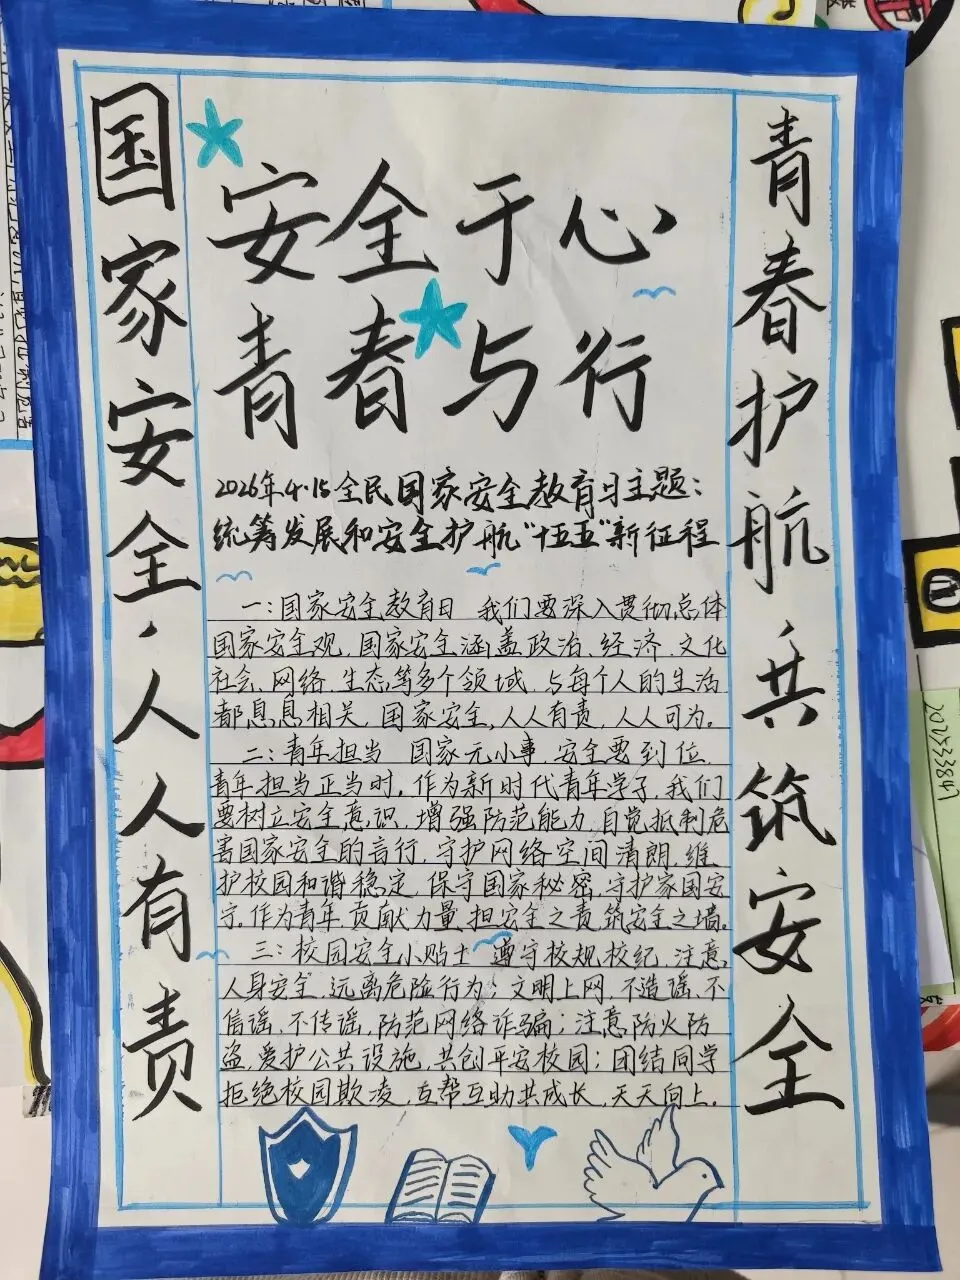 国家安全·人人有责
安全于心
青春与行
2026年4·15全民国家安全教育日主题：
统筹发展和安全护航“十五五”新征程
一：国家安全教育日 我们要深入贯彻总体
国家安全观，国家安全涵盖政治、经济、文化
社会、网络、生态等多个领域，与每个人的生活
都息息相关，国家安全，人人有责，人人可为。
二：青年担当 国家无小事，安全要到位
青年担当正当时，作为新时代青年学子，我们
要树立安全意识、增强防范能力，自觉抵制危
害国家安全的言行，守护网络空间清朗，维
护校园和谐稳定，保守国家秘密，守护家国安
宁。作为青年，贡献力量，担安全之责，筑安全之墙。
三：校园安全小贴士 遵守校规校纪，注意
人身安全，远离危险行为；文明上网，不造谣、不
信谣、不传谣，防范网络诈骗；注意防火防
盗，爱护公共设施，共创平安校园；团结同学
拒绝校园欺凌，互帮互助共成长，天天向上。
青春护航共筑安全